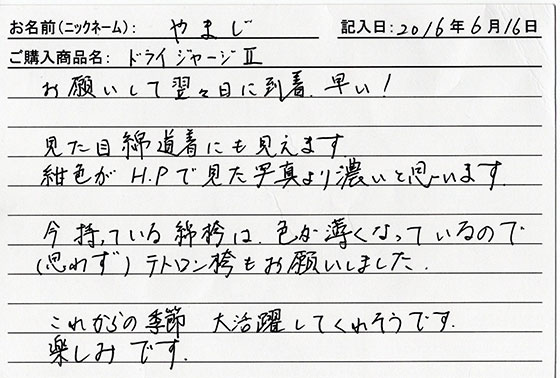 お名前(ニックネーム): やまじ 記入日: 2016年6月16日
ご購入商品名: ドライジャージⅡ
お願いして翌々日に到着、早い!
見た目綿道着にも見えます
紺色が H.Pで見た写真より濃いと思います.
今持っている綿袴は、色が薄くなっているので
(思わず)テトロン袴もお願いしました.
これからの季節 大活躍してくれそうです.
楽しみです.